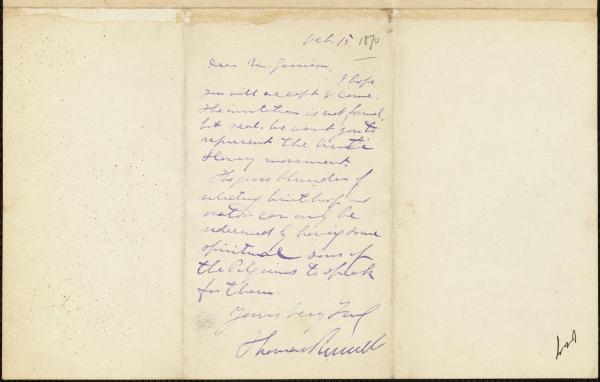 Oct. 15 1870
Dear Mr. Garrison,
I hope
you will accept & come.
The invitation is not formal,
but real. We want you to
represent the Anti
Slavery movement.
The gross blunder of
selecting Winthrop as
orator can only be
redeemed by having some
spiritual sons of
the Pilgrims to speak
for them.
Yours Very Truly
Thomas Russell